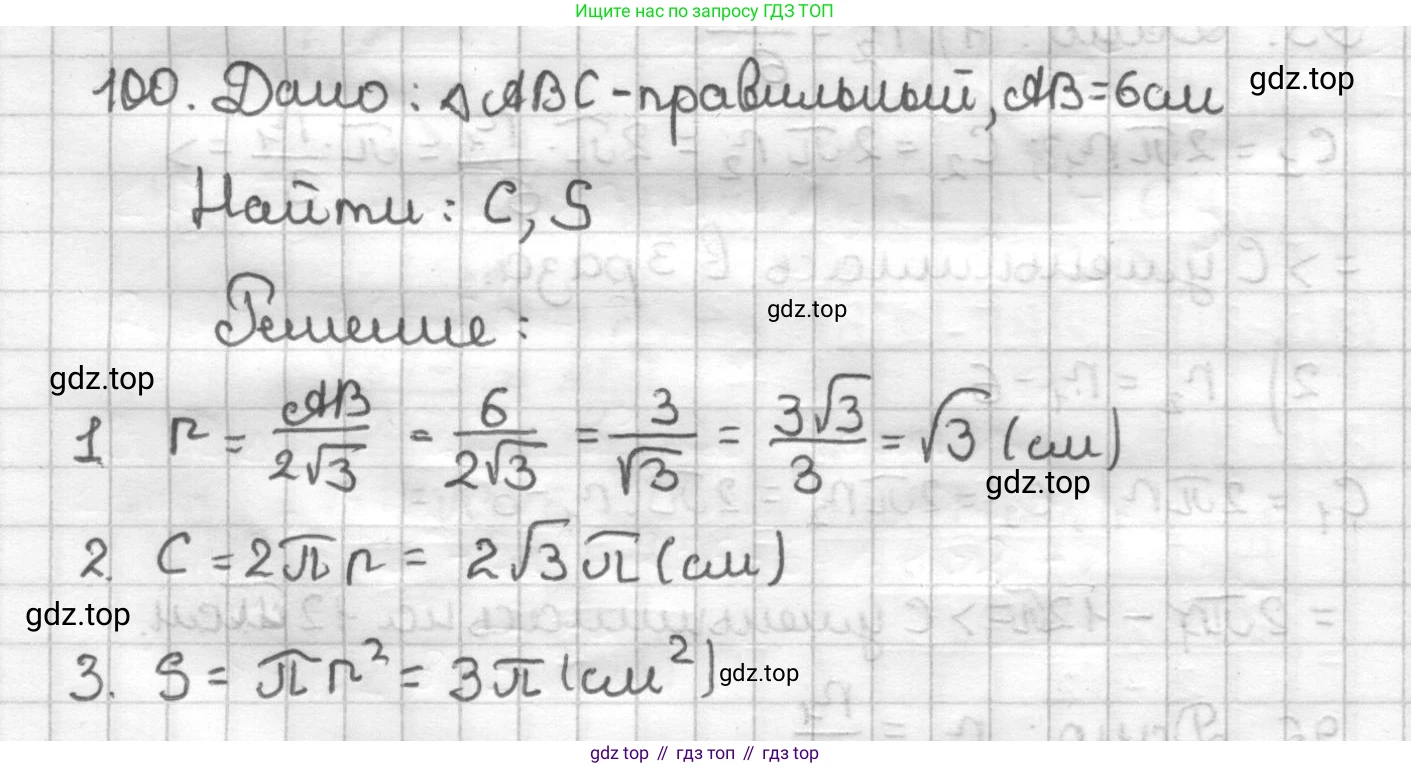 Ищите нас по запросу ГДЗ ТОП
100. Дано: △ABC - правильный, AB = 6 см
gdz.top
Найти: C, S
Решение:
gdz.top
gdz.top
1 r = AB/2√3 = 6/2√3 = 3/√3 = 3√3/3 = √3 (см)
gdz.top
2. C = 2πr = 2√3π (см)
gdz.top
3. S = πr² = 3π (см²)
gdz.top
gdz top // гдз топ // гдз top